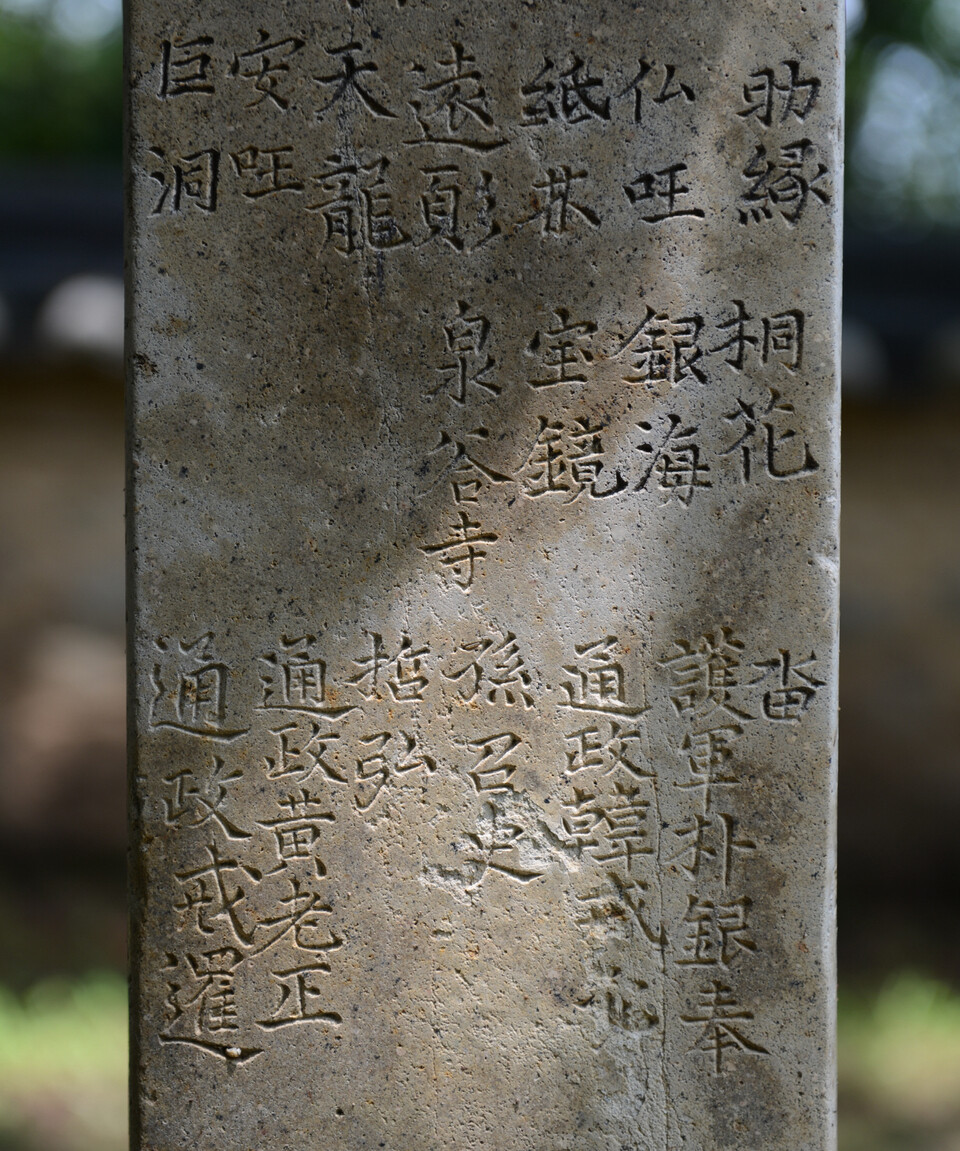 助縁
仏旺
紙
遠
天龍
安旺
巨洞
桐花
銀海
宝鏡
泉谷寺
畓
護軍朴銀奉
通政韓
孫召史
哲弘
通政黄老正
通政戒